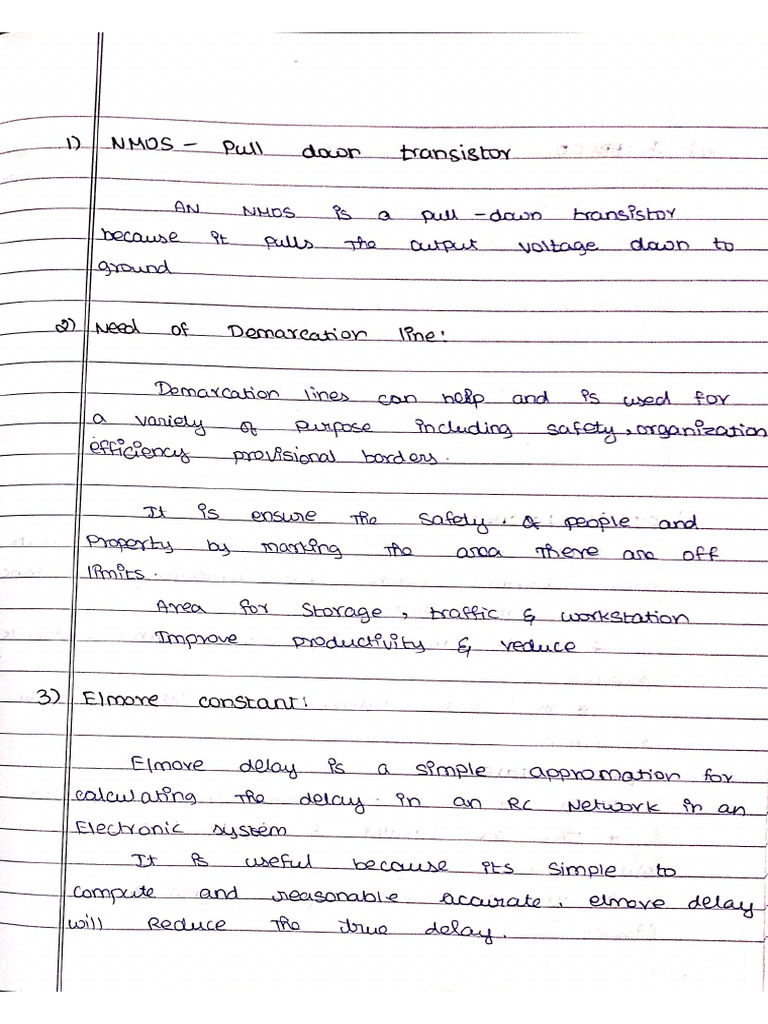 1) NMOS - Pull down transistor
AN NMOS is a pull-down transistor
because it pulls the output voltage down to
ground
2) Need of Demarcation line:
Demarcation lines can help and is used for
a variely of purpose including safety, organization
efficiency provisional borders.
It is ensure the safety. & people and
property by marking the area there are off
limits.
Area for storage, traffic & workstation
Improve productivity & reduce
3) Elmore constant:
Elmore delay is a simple appromation for
calculating the delay in an RC Network in an
Electronic system
It is useful because its simple to
compute and reasonable accurate. elmore delay
will Reduce the true delay.